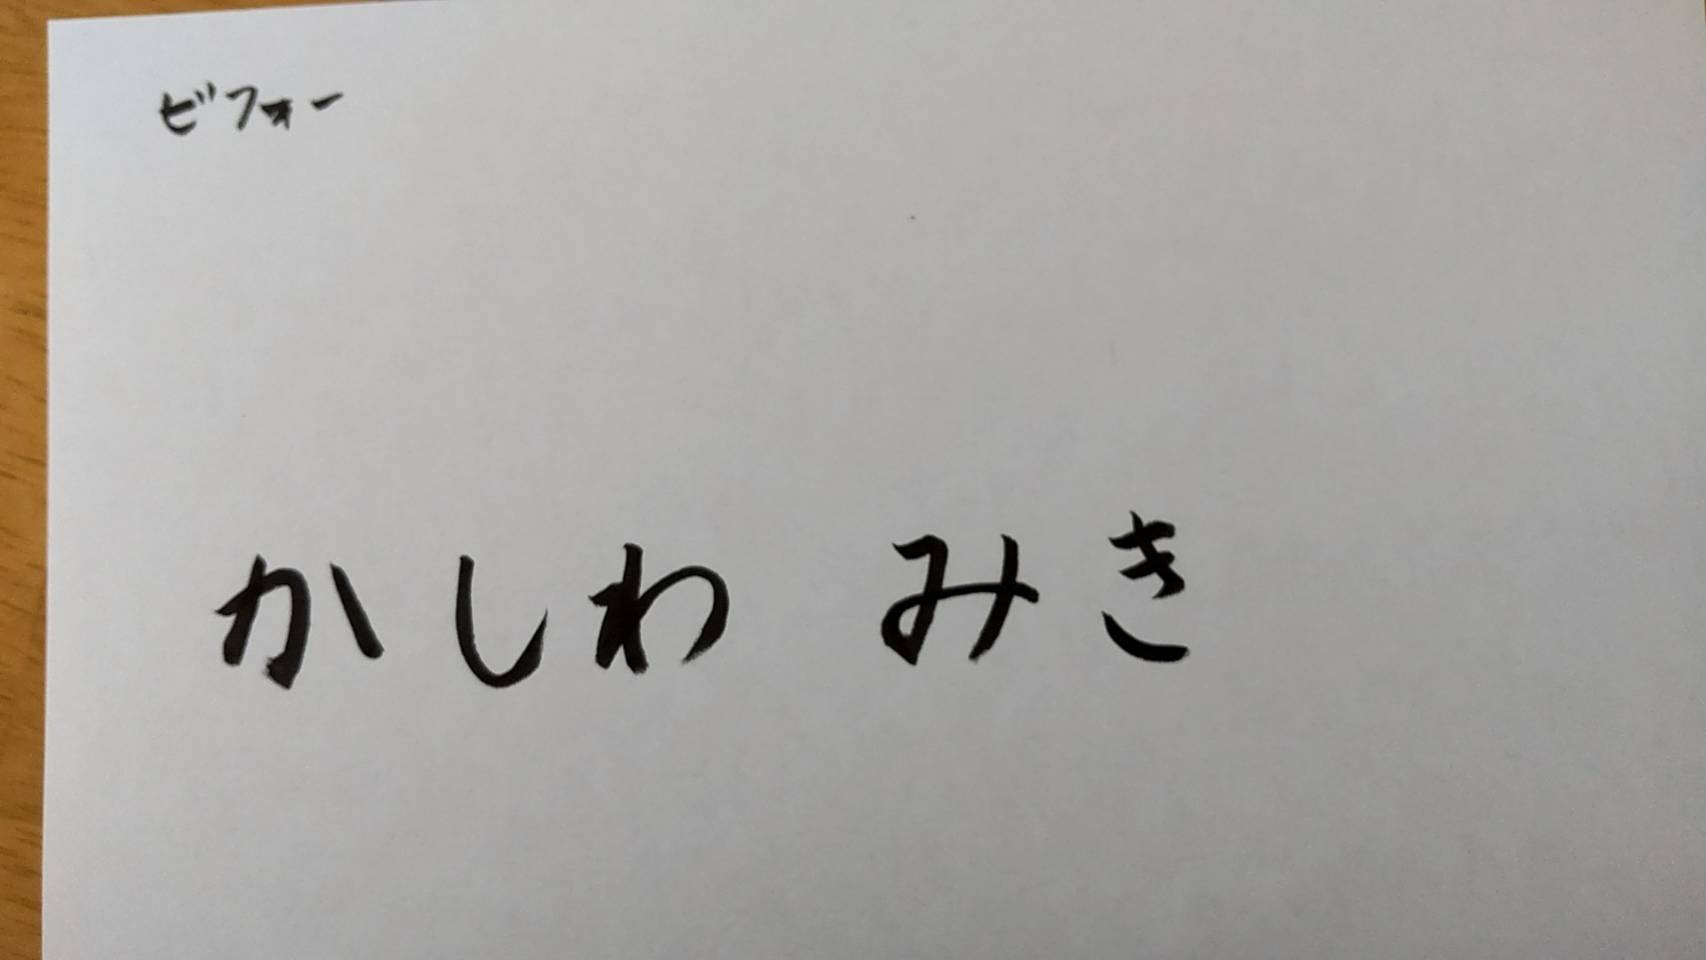 ビフォー
かしわ みき